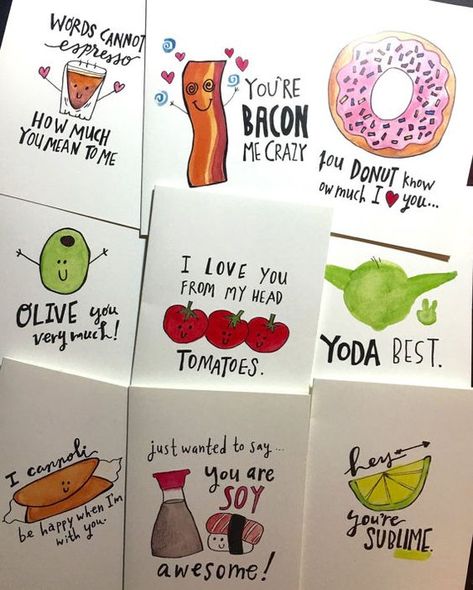 WORDS CANNOT
espresso
HOW MUCH
YOU MEAN TO ME
YOU'RE
BACON
ME CRAZY
you DONUT know
ow much I ❤ you...
OLIVE you
very much!
I LOVE YOU
FROM MY HEAD
TOMATOES.
YODA BEST.
I cannoli
be happy when I'm
with you.
just wanted to say...
you are
SOY
awesome!
hey
you're
SUBLIME.